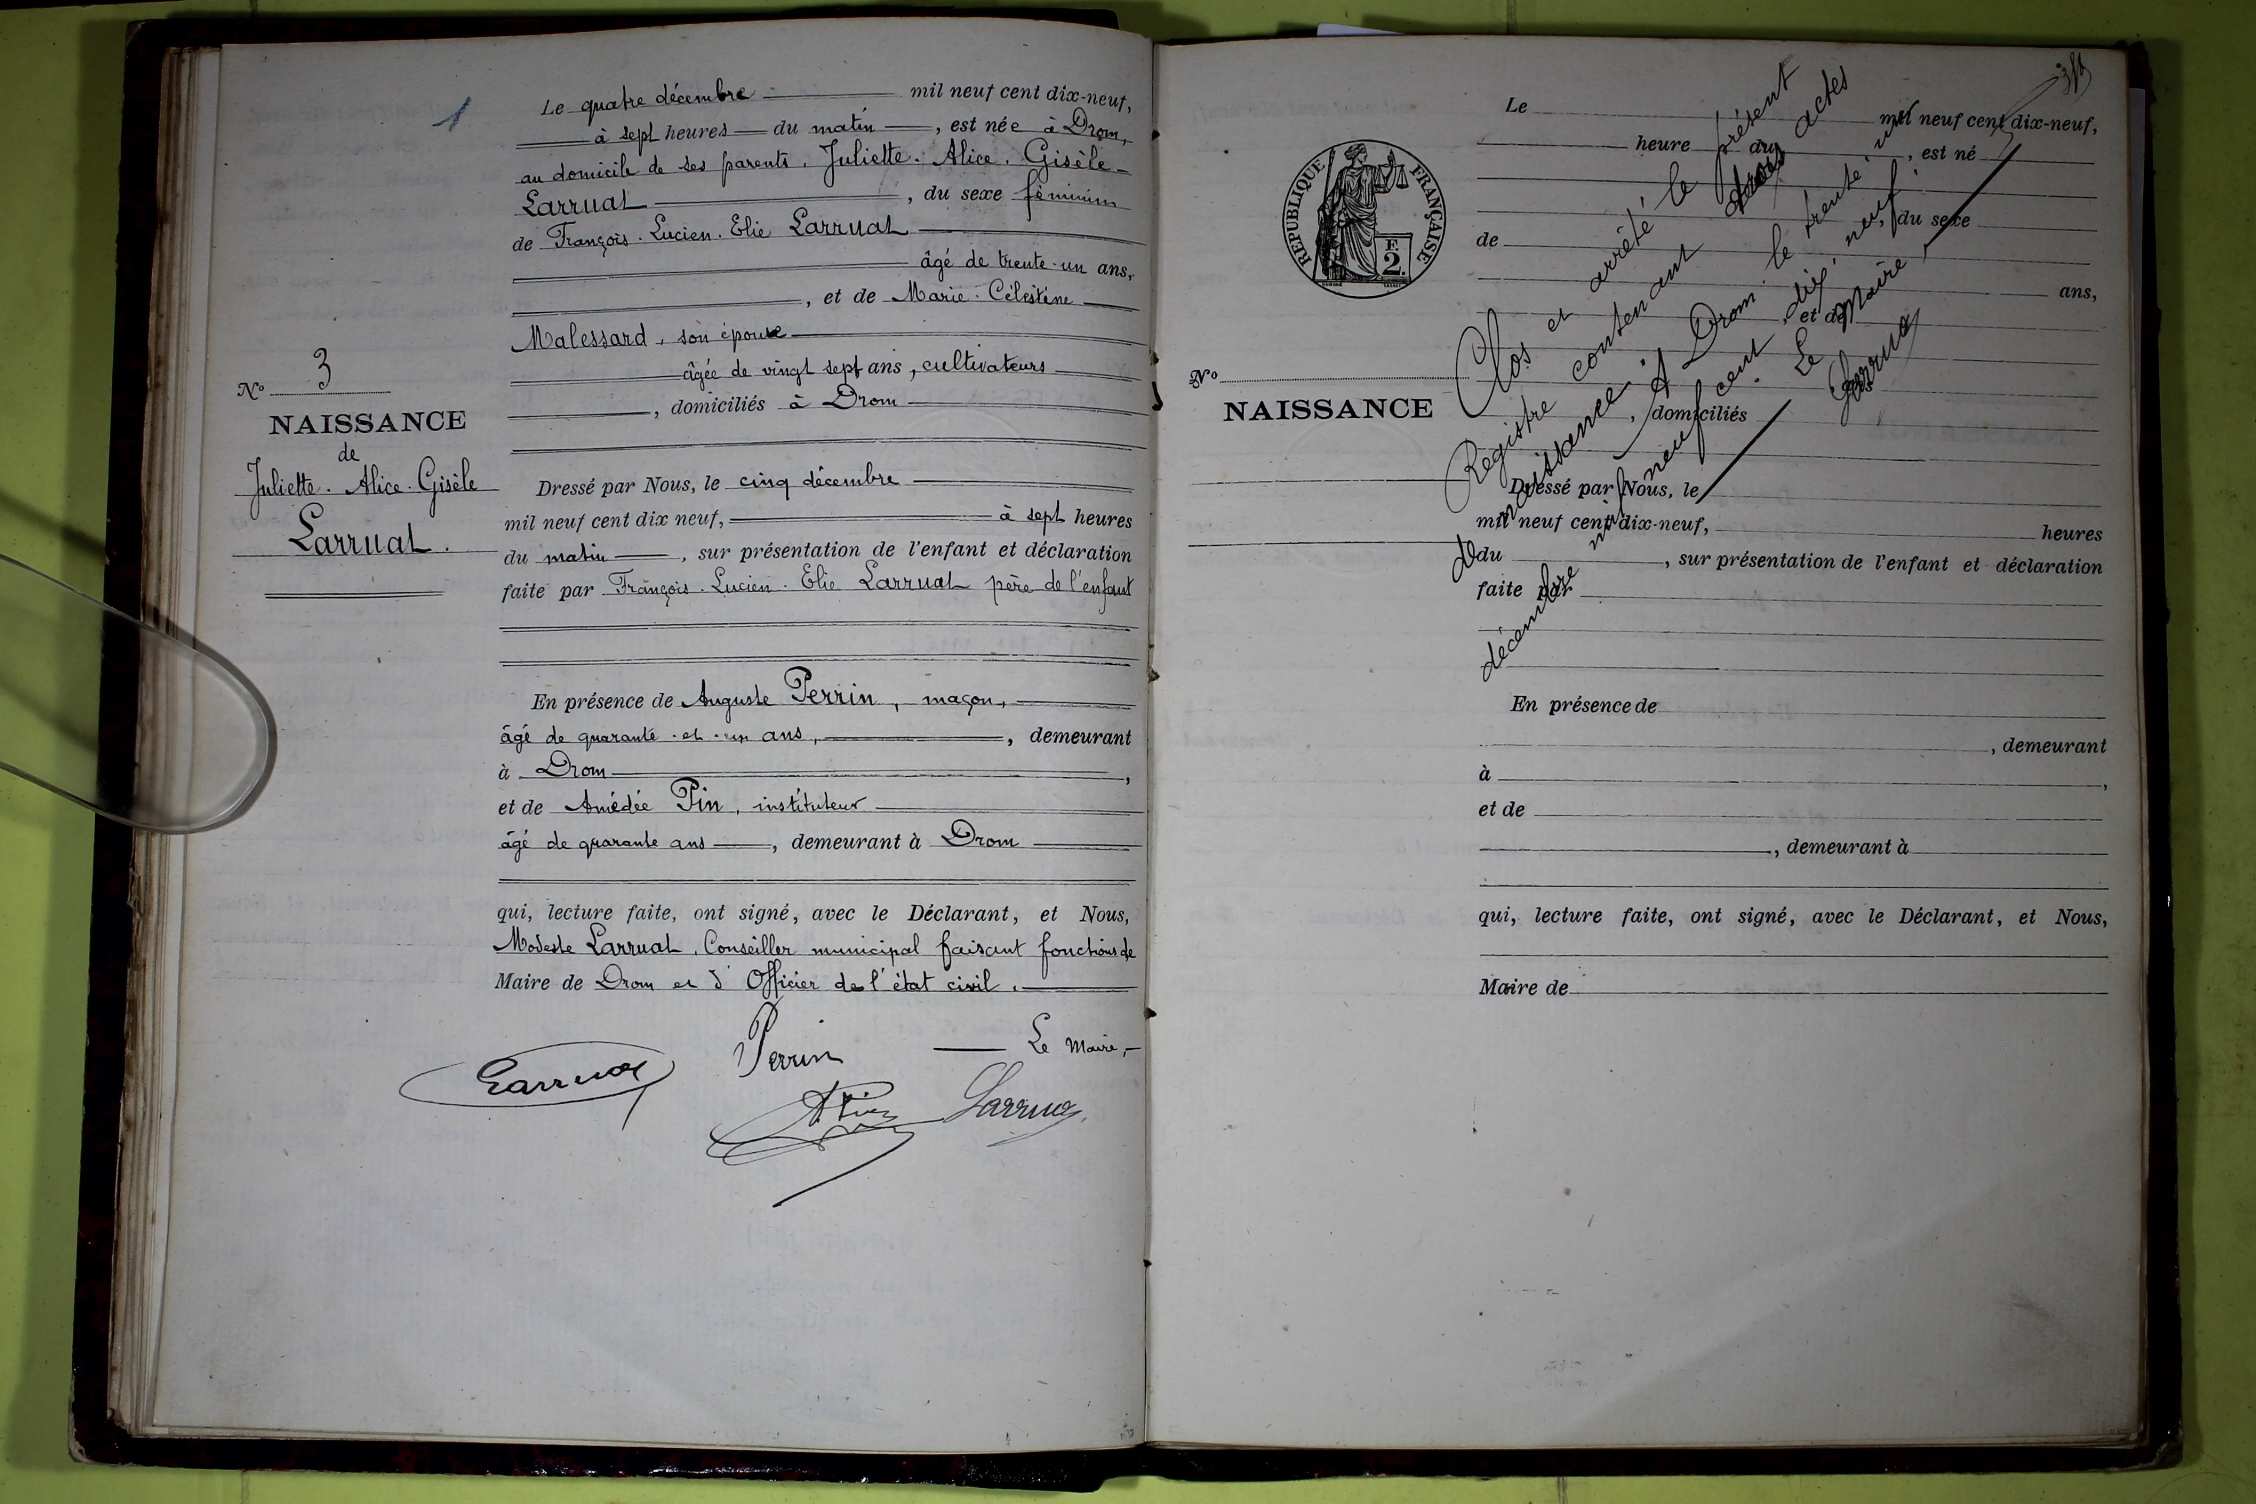 1
Le quatre décembre mil neuf cent dix-neuf,
à sept heures du matin, est née à Drom,
au domicile de ses parents, Juliette. Alice. Gisèle
Larruat, du sexe féminin
de François. Lucien. Elie Larruat
âgé de trente-un ans,
, et de Marie. Célestine
Malessard, son épouse
âgée de vingt sept ans, cultivateurs
, domiciliés à Drom
No 3
NAISSANCE
de
Juliette. Alice. Gisèle
Larruat.
Dressé par Nous, le cinq décembre
mil neuf cent dix neuf, à sept heures
du matin, sur présentation de l'enfant et déclaration
faite par François. Lucien. Elie Larruat père de l'enfant
En présence de Auguste Perrin, maçon,
âgé de quarante-et-un ans, demeurant
à Drom,
et de Amédée Pin, instituteur
âgé de quarante ans, demeurant à Drom
qui, lecture faite, ont signé, avec le Déclarant, et Nous,
Modeste Larruat, Conseiller municipal faisant fonctions de
Maire de Drom et d'Officier de l'état civil.
Le Maire,
Larruat
Perrin
A Pin
Larruat
REPUBLIQUE FRANÇAISE
F.
2.
Le mil neuf cent dix-neuf,
heure du, est né
, du sexe
de
ans,
, et de
No
NAISSANCE
, domiciliés
Dressé par Nous, le
mil neuf cent dix-neuf, heures
du, sur présentation de l'enfant et déclaration
faite par
En présence de
, demeurant
à,
et de
, demeurant à
qui, lecture faite, ont signé, avec le Déclarant, et Nous,
Maire de
Clos et arrêté le présent
Registre contenant trois actes
de naissance. A Drom le trente un
décembre mil neuf cent dix neuf.
Le Maire
Larruat